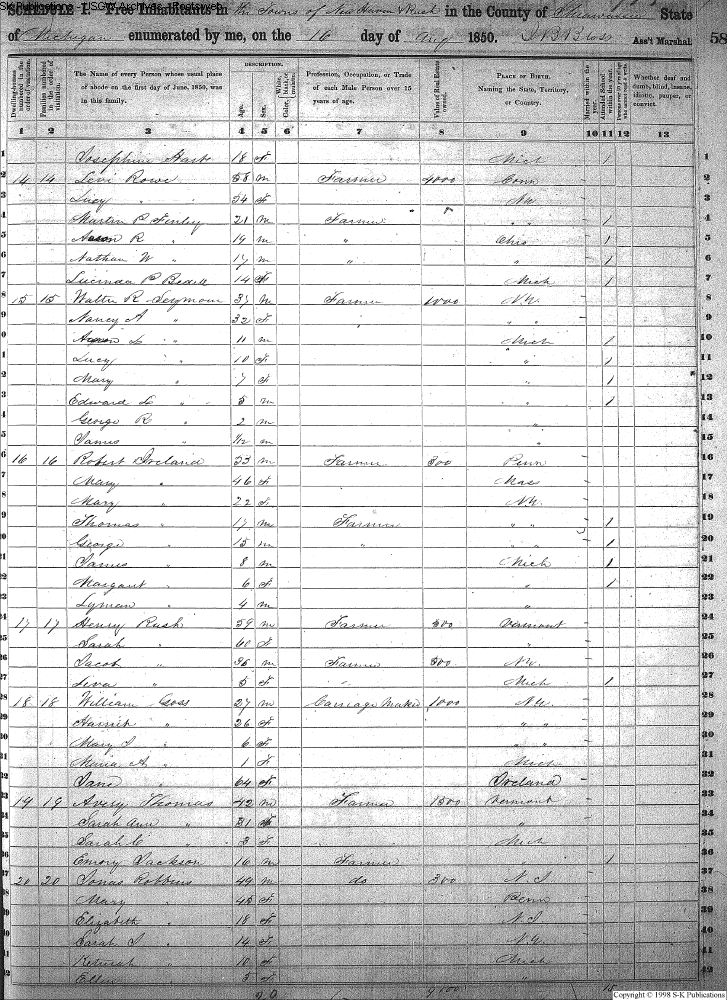 SCHEDULE I. Free Inhabitants in the Towns of New Haven & Rush in the County of Shiawassee State
of Michigan enumerated by me, on the 16 day of Aug 1850. Ass't Marshal 58
Dwelling-houses numbered in the order of visitation.
Families numbered in the order of visitation.
The Name of every Person whose usual place of abode on the first day of June, 1850, was in this family.
DESCRIPTION.
Age.
Sex.
Color,
Profession, Occupation, or Trade of each Male Person over 15 years of age.
Value of Real Estate owned.
PLACE OF BIRTH. Naming the State, Territory, or Country.
Married within the year.
Attended School within the year.
Whether deaf and dumb, blind, insane, idiotic, pauper, or convict.
1 2 3 4 5 6 7 8 9 10 11 12 13
1 Josephine Hart 18 F Mich / 1
2 14 14 Levi Rowe 58 m Farmer 4000 Conn 2
3 Lucy " 54 F N.Y. 3
4 Martin P Finley 21 m Farmer " / 4
5 Aaron R " 19 m " Ohio / 5
6 Nathan W " 17 m " " / 6
7 Lucinda P Bedell 14 F Mich / 7
8 15 15 Walter R Seymour 37 M Farmer 1000 N.Y. 8
9 Nancy A " 32 F " " 9
10 Aaron L " 11 m Mich / 10
11 Lucy " 10 F " / 11
12 Mary " 7 F " / 12
13 Edward L " 5 m " / 13
14 George R " 2 m " 14
15 James " /12 m " 15
16 16 16 Robert Ireland 53 m Farmer 300 Penn 16
17 Mary " 46 F Mas 17
18 Mary " 22 F N.Y. 18
19 Thomas " 17 m Farmer " " / 19
20 George " 15 m " " " / 20
21 James " 8 m Mich / 21
22 Margaret " 6 F " / 22
23 Lyman " 4 m " 23
24 17 17 Henry Rush 59 m Farmer 300 Vermont 24
25 Sarah " 60 F " 25
26 Jacob " 36 m Farmer 500 N.Y. 26
27 " 5 F Mich / 27
28 18 18 William Goss 27 m Carriage Maker 1000 N.Y. 28
29 Harriet " 26 F " " 29
30 Mary J " 6 F " " 30
31 A " 1 F Mich 31
32 Jane " 64 F Ireland 32
33 19 19 Avery Thomas 42 m Farmer 1500 Vermont 33
34 Sarah Ann " 31 F " 34
35 Sarah C " 3 F Mich 35
36 Emory Jackson 16 m Farmer / 36
37 20 20 Jonas Robbins 49 m do 300 N.J. 37
38 Mary " 45 F Penn 38
39 Elizabeth " 18 F N.J. 39
40 Sarah J " 14 F N.Y. 40
41 Keturah " 10 F Mich 41
42 Ellen " 5 F " 42
9100 15
Copyright © 1998 S-K Publications